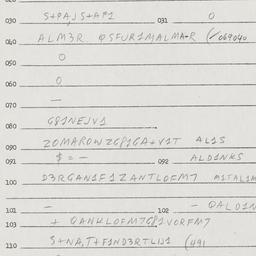 030 S+PAJS+AP1 031 0
040 ALM3R QSFUR1MALMA-R (✓069040
0
050
0
060
—
070
080 G81NEJV1
090 ZOMAROWZC81GA+V1T AL1S
091 $ = — 092 ALD1NKS
100 D3RGAN1F1ZANTLOFM7 M1TAL1M
101 — 102 - QALD1N
103 + QANKLOFM7G81VORFM7
110 S+NA,T+F1ND3RTLIJ1 (491